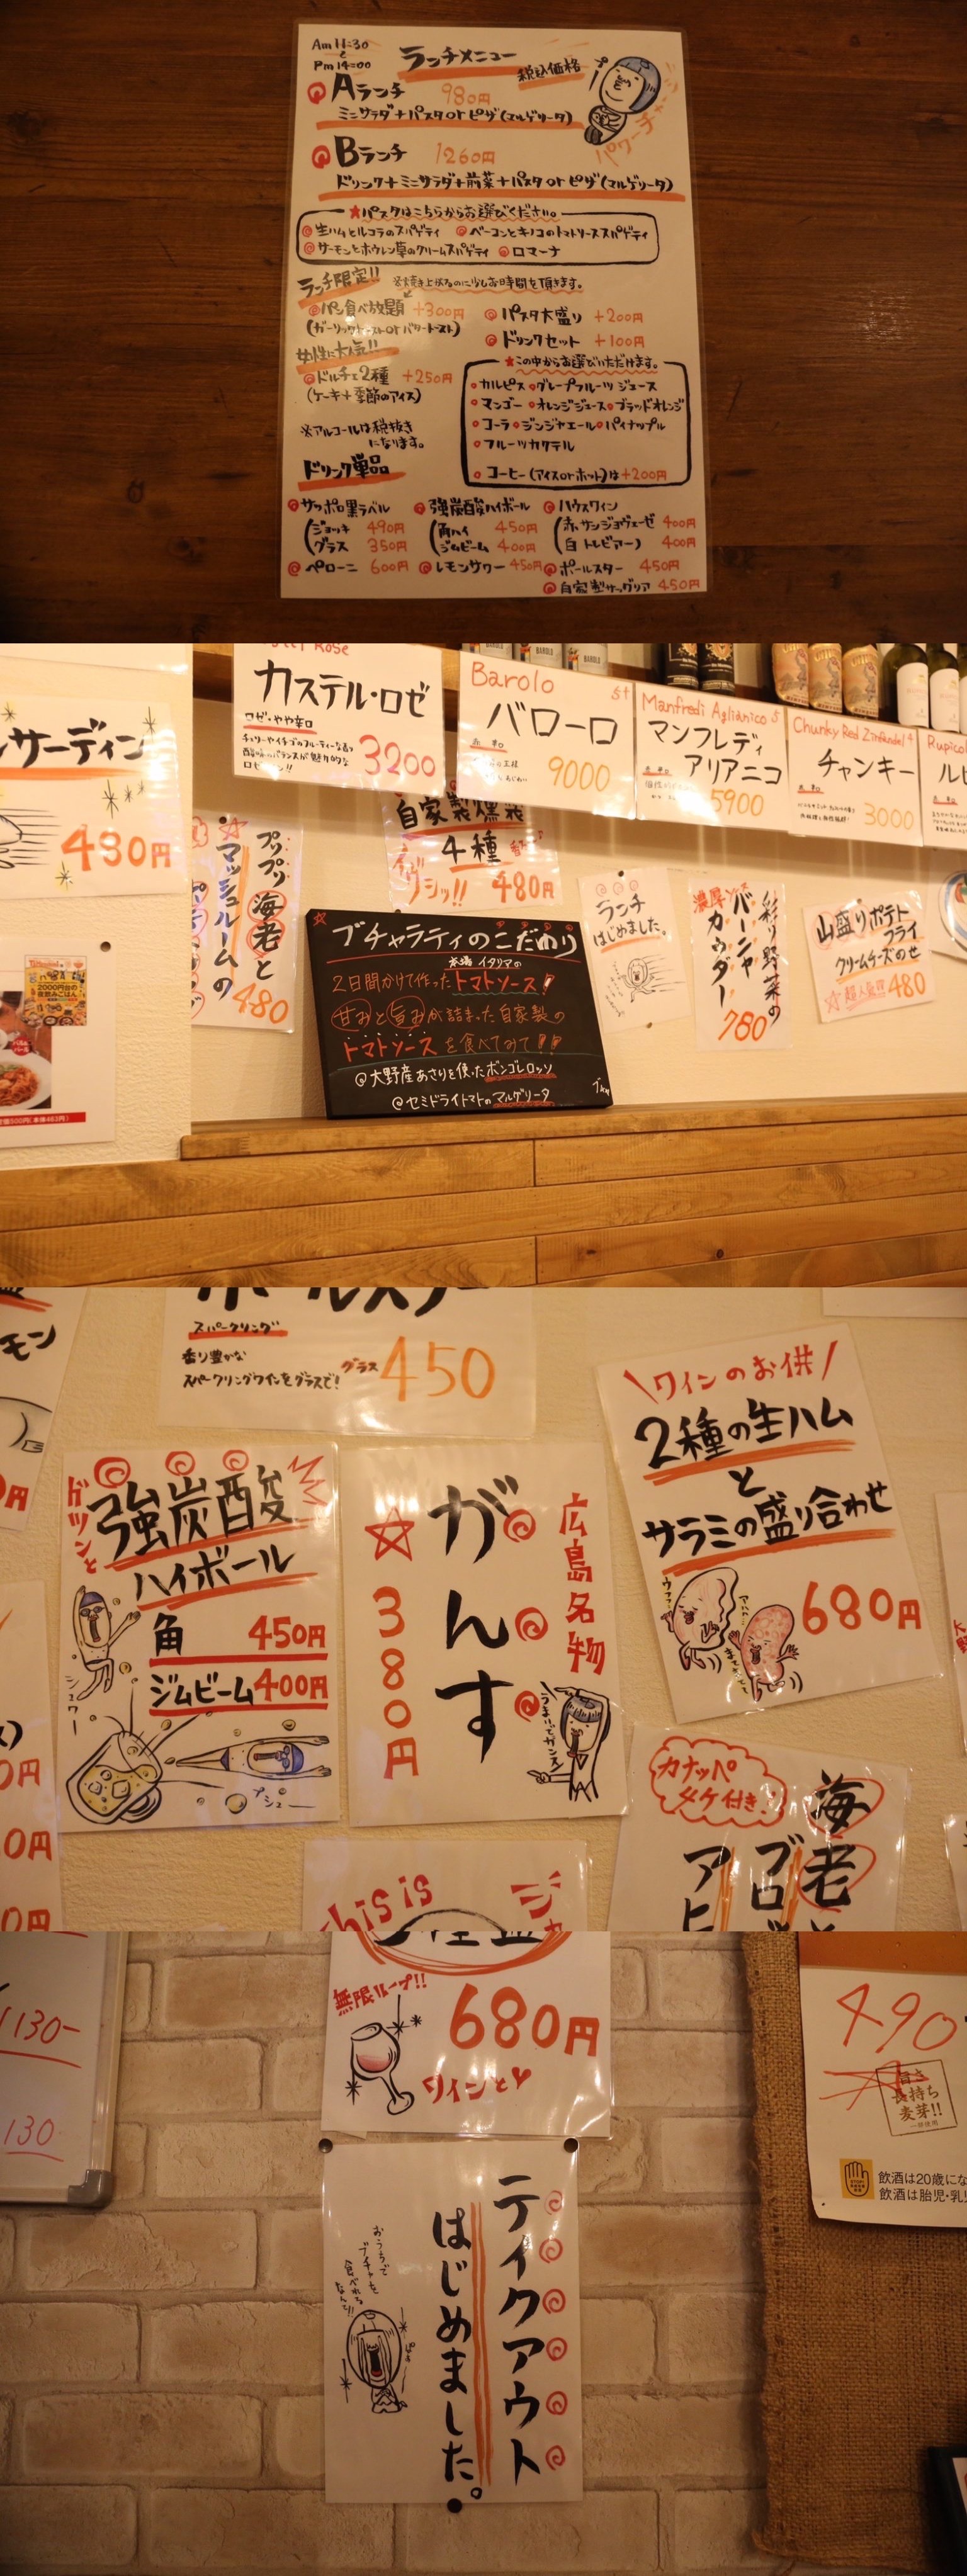 Am 11:30
~
Pm 14:00
ランチメニュー
税込価格
Aランチ 980円
ミニサラダ+パスタ or ピザ(マルゲリータ)
Bランチ 1260円
ドリンク+ミニサラダ+前菜+パスタ or ピザ(マルゲリータ)
★パスタはこちらからお選びください。
生ハムとルコラのスパゲティ ベーコンとキノコのトマトソーススパゲティ
サーモンとホウレン草のクリームスパゲティ ロマーナ
ランチ限定!! ※焼き上がるのに少しお時間を頂きます。
パン食べ放題 +300円
(ガーリックトーストorバタートースト)
女性に大人気!!
ドルチェ2種 +250円
(ケーキ+季節のアイス)
パスタ大盛り +200円
ドリンクセット +100円
★この中からお選びいただけます。
カルピス グレープフルーツジュース
マンゴー オレンジジュース ブラッドオレンジ
コーラ ジンジャエール パイナップル
フルーツカクテル
コーヒー(アイスorホット)は+200円
※アルコールは税抜き
になります。
ドリンク単品
サッポロ黒ラベル
(ジョッキ 490円
グラス 350円
ペローニ 600円
強炭酸ハイボール
(角ハイ 450円
ジムビーム 400円
レモンサワー 450円
ハウスワイン
(赤 サンジョヴェーゼ 400円
白 トレビアーノ) 400円
ポールスター 450円
自家製サングリア 450円
サーディン
480円
Rose
カステル・ロゼ
ロゼ・やや辛口
チェリーやイチゴのフルーティーな香り
3200
Barolo
バローロ
赤 辛口
9000
Manfredi Aglianico
マンフレディ
アリアニコ
5900
Chunky Red Zinfandel
チャンキー
赤 辛口
3000
プリプリ海老と
マッシュルームの
480
自家製燻製
4種
480円
ランチ
はじめました。
彩り野菜の
バーニャ
カウダー
濃厚ソース
780
山盛りポテト
フライ
クリームチーズのせ
480
2000円台の
ブチャラティのこだわり
本場イタリアの
2日間かけて作ったトマトソース!
甘みと旨みが詰まった自家製の
トマトソースを食べてみて!!
@大野産あさりを使ったボンゴレロッソ
@セミドライトマトのマルゲリータ
モン
スパークリング
香り豊かな
スパークリングワインをグラスで!
グラス 450
ワインのお供
2種の生ハム
と
サラミの盛り合わせ
680円
ドツンと
強炭酸
ハイボール
角 450円
ジムビーム 400円
シュワー
プシュー
広島名物
がんす
380円
カナッペ
4ケ付き!
海老
This is
無限ループ!!
680円
ワインと
1130-
130
490
長持ち
麦芽!!
飲酒は20歳にな
飲酒は胎児・乳児
テイクアウト
はじめました。
おうちで
ブチャを
食べれる
なんて!!